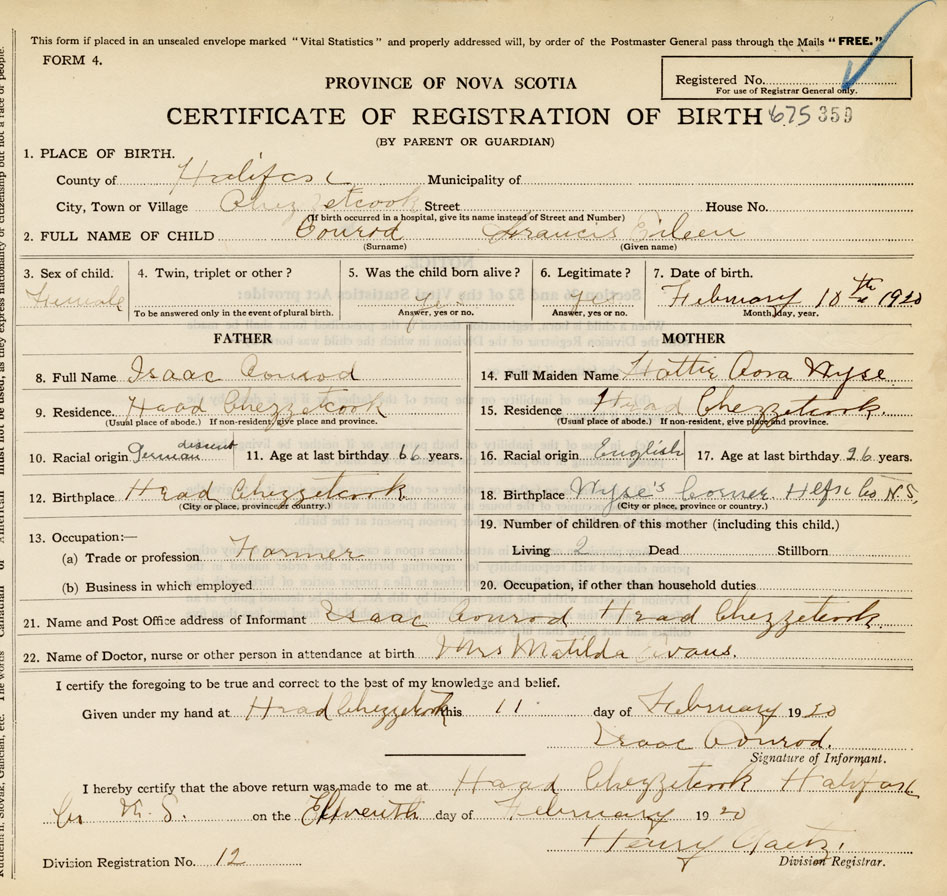 This form if placed in an unsealed envelope marked "Vital Statistics" and properly addressed will, by order of the Postmaster General pass through the Mails "FREE."
FORM 4.
Registered No.
For use of Registrar General only.
PROVINCE OF NOVA SCOTIA
CERTIFICATE OF REGISTRATION OF BIRTH 675 359
(BY PARENT OR GUARDIAN)
1. PLACE OF BIRTH.
County of Halifax Municipality of
City, Town or Village Chezzetcook Street House No.
(If birth occurred in a hospital, give its name instead of Street and Number)
2. FULL NAME OF CHILD Conrod Francis Eileen
(Surname) (Given name)
3. Sex of child. 4. Twin, triplet or other? 5. Was the child born alive? 6. Legitimate? 7. Date of birth.
Female Yes Yes February 10th 1920
To be answered only in the event of plural birth. Answer, yes or no. Answer, yes or no. Month, day, year.
FATHER MOTHER
8. Full Name Isaac Conrod 14. Full Maiden Name Hattie Cora Wyse
9. Residence. Head Chezzetcook 15. Residence Head Chezzetcook.
(Usual place of abode.) If non-resident, give place and province. (Usual place of abode.) If non-resident, give place and province.
10. Racial origin German descent 11. Age at last birthday 66 years. 16. Racial origin English 17. Age at last birthday 26 years.
12. Birthplace Head Chezzetcook. 18. Birthplace Wyse's Corner Hlfx Co N.S,
(City or place, province or country.) (City or place, province or country.)
13. Occupation:— 19. Number of children of this mother (including this child.)
(a) Trade or profession Farmer Living 2 Dead Stillborn
(b) Business in which employed 20. Occupation, if other than household duties
21. Name and Post Office address of Informant Isaac Conrod Head Chezzetcook.
22. Name of Doctor, nurse or other person in attendance at birth Mrs Matilda Evans.
I certify the foregoing to be true and correct to the best of my knowledge and belief.
Given under my hand at Head Chezzetcook this 11 day of February 1920
Isaac Conrod.
Signature of Informant.
I hereby certify that the above return was made to me at Head Chezzetcook Halifax
Co N.S. on the Eleventh day of February 1920
Henry Gaetz.
Division Registration No. 12 Division Registrar.